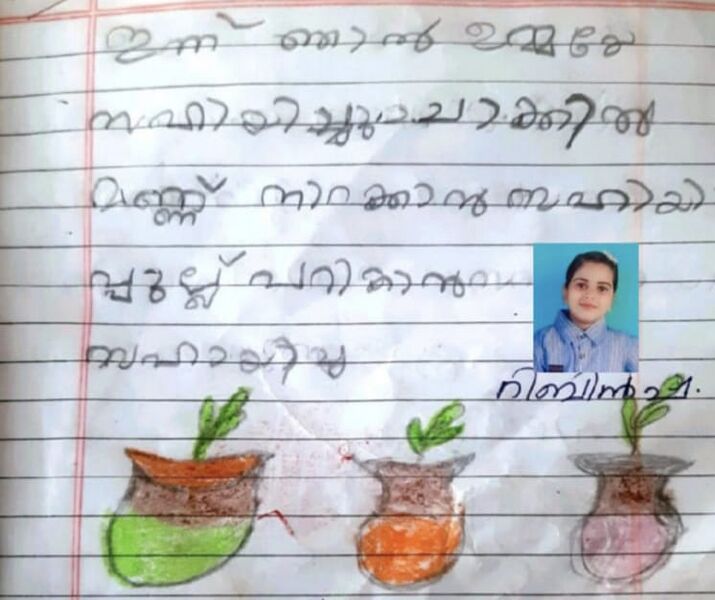 ഇന്ന് ഞാൻ ഉമ്മയേ
സഹിയിച്ചു ചാക്കിൽ
മണ്ണ് നിറക്കാൻ സഹിയി
പ്പുല്ല് പറികാൻ
സഹായിച്ച